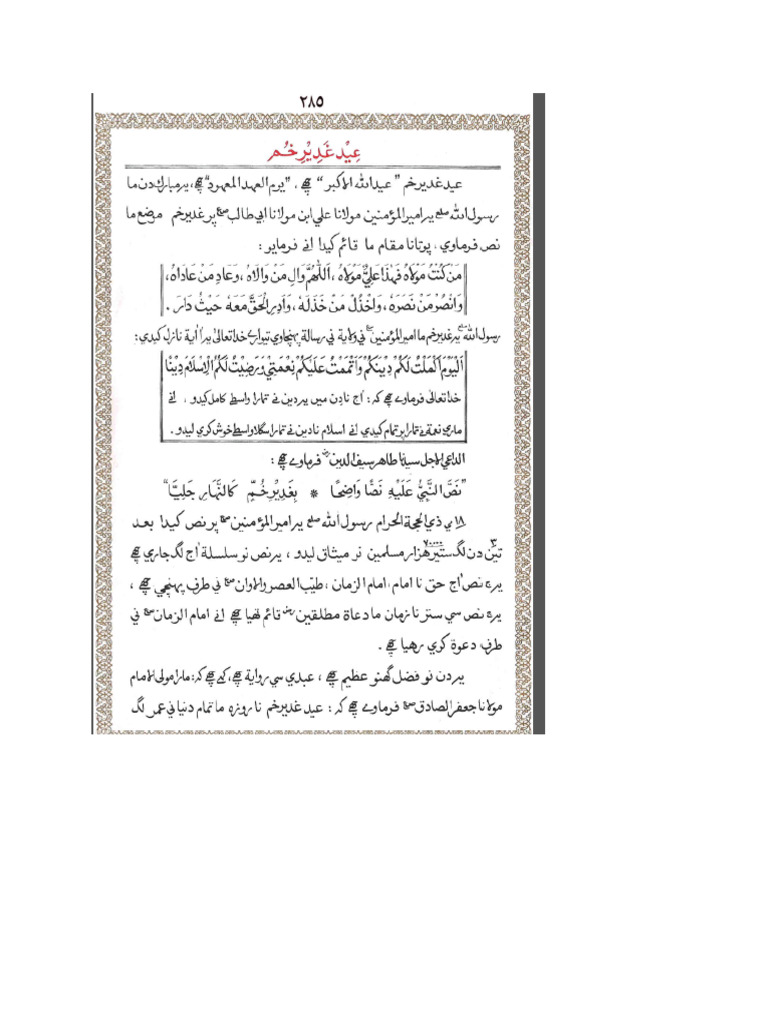 ٢٨٥
عِيْد غَدِيْرِ خُم
عيد غدير خم "عيد الله الاكبر" چھے، "يوم العهد المعهود" چھے، يہ مبارك دن ما
رسول الله صلع يہ امير المؤمنين مولانا علي ابن مولانا ابي طالب صع پر غدير خم موضع ما
نص فرماوي، پوتانا مقام ما قائم كيدا انے فرمايو:
مَنْ كُنْتُ مَوْلَاهُ فَهٰذَا عَلِيٌّ مَوْلَاهُ، اَللّٰهُمَّ وَالِ مَنْ وَالَاهُ، وَعَادِ مَنْ عَادَاهُ،
وَانْصُرْ مَنْ نَصَرَهُ، وَاخْذُلْ مَنْ خَذَلَهُ، وَأَدِرِ الْحَقَّ مَعَهُ حَيْثُ دَارَ.
رسول الله صلع يہ غدير خم ما امير المؤمنين صع ني ولاية ني رسالة پهنچاوي تيوارے خدا تعالى يہ اْ اٰية نازل كيدي:
اَلْيَوْمَ اَكْمَلْتُ لَكُمْ دِيْنَكُمْ وَاَتْمَمْتُ عَلَيْكُمْ نِعْمَتِيْ وَرَضِيْتُ لَكُمُ الْاِسْلَامَ دِيْنًا
خدا تعالى فرماوے چھے كہ: اْج نا دن ميں يہ دين نے تمارا واسطے كامل كيدو، انے
ماري نعمة نے تمارا پر تمام كيدي انے اسلام نا دين نے تمارا سگلا واسطے خوش كري ليدو.
الداعي الاجل سيدنا طاهر سيف الدين رض فرماوے چھے:
"نَصَّ النَّبِيُّ عَلَيْهِ نَصًّا وَاضِحًا * بِغَدِيْرِ خُمٍّ كَالنَّهَارِ جَلِيًّا"
١٨ مي ذي الحجة الحرام رسول الله صلع يہ امير المؤمنين صع پر نص كيدا بعد
تين ٣ دن لگ ستير ٧٠٠٠٠ هزار مسلمين نو ميثاق ليدو، يہ نص نو سلسلة اْج لگ جاري چھے
يہ ج نص اْج حق نا امام، امام الزمان، طيّب العصر والاوان صع ني طرف پهنچي چھے،
يہ ج نص سي ستر نا زمان ما دعاة مطلقين رض قائم تهيا چھے انے امام الزمان صع ني
طرف دعوة كري رهيا چھے.
يہ دن نو فضل گھنو عظيم چھے، عبدي سي رواية چھے، كہے چھے كہ: مارا مولى الامام
مولانا جعفر الصادق صع فرماوے چھے كہ: عيد غدير خم نا روزه ما تمام دنيا ني عمر لگ